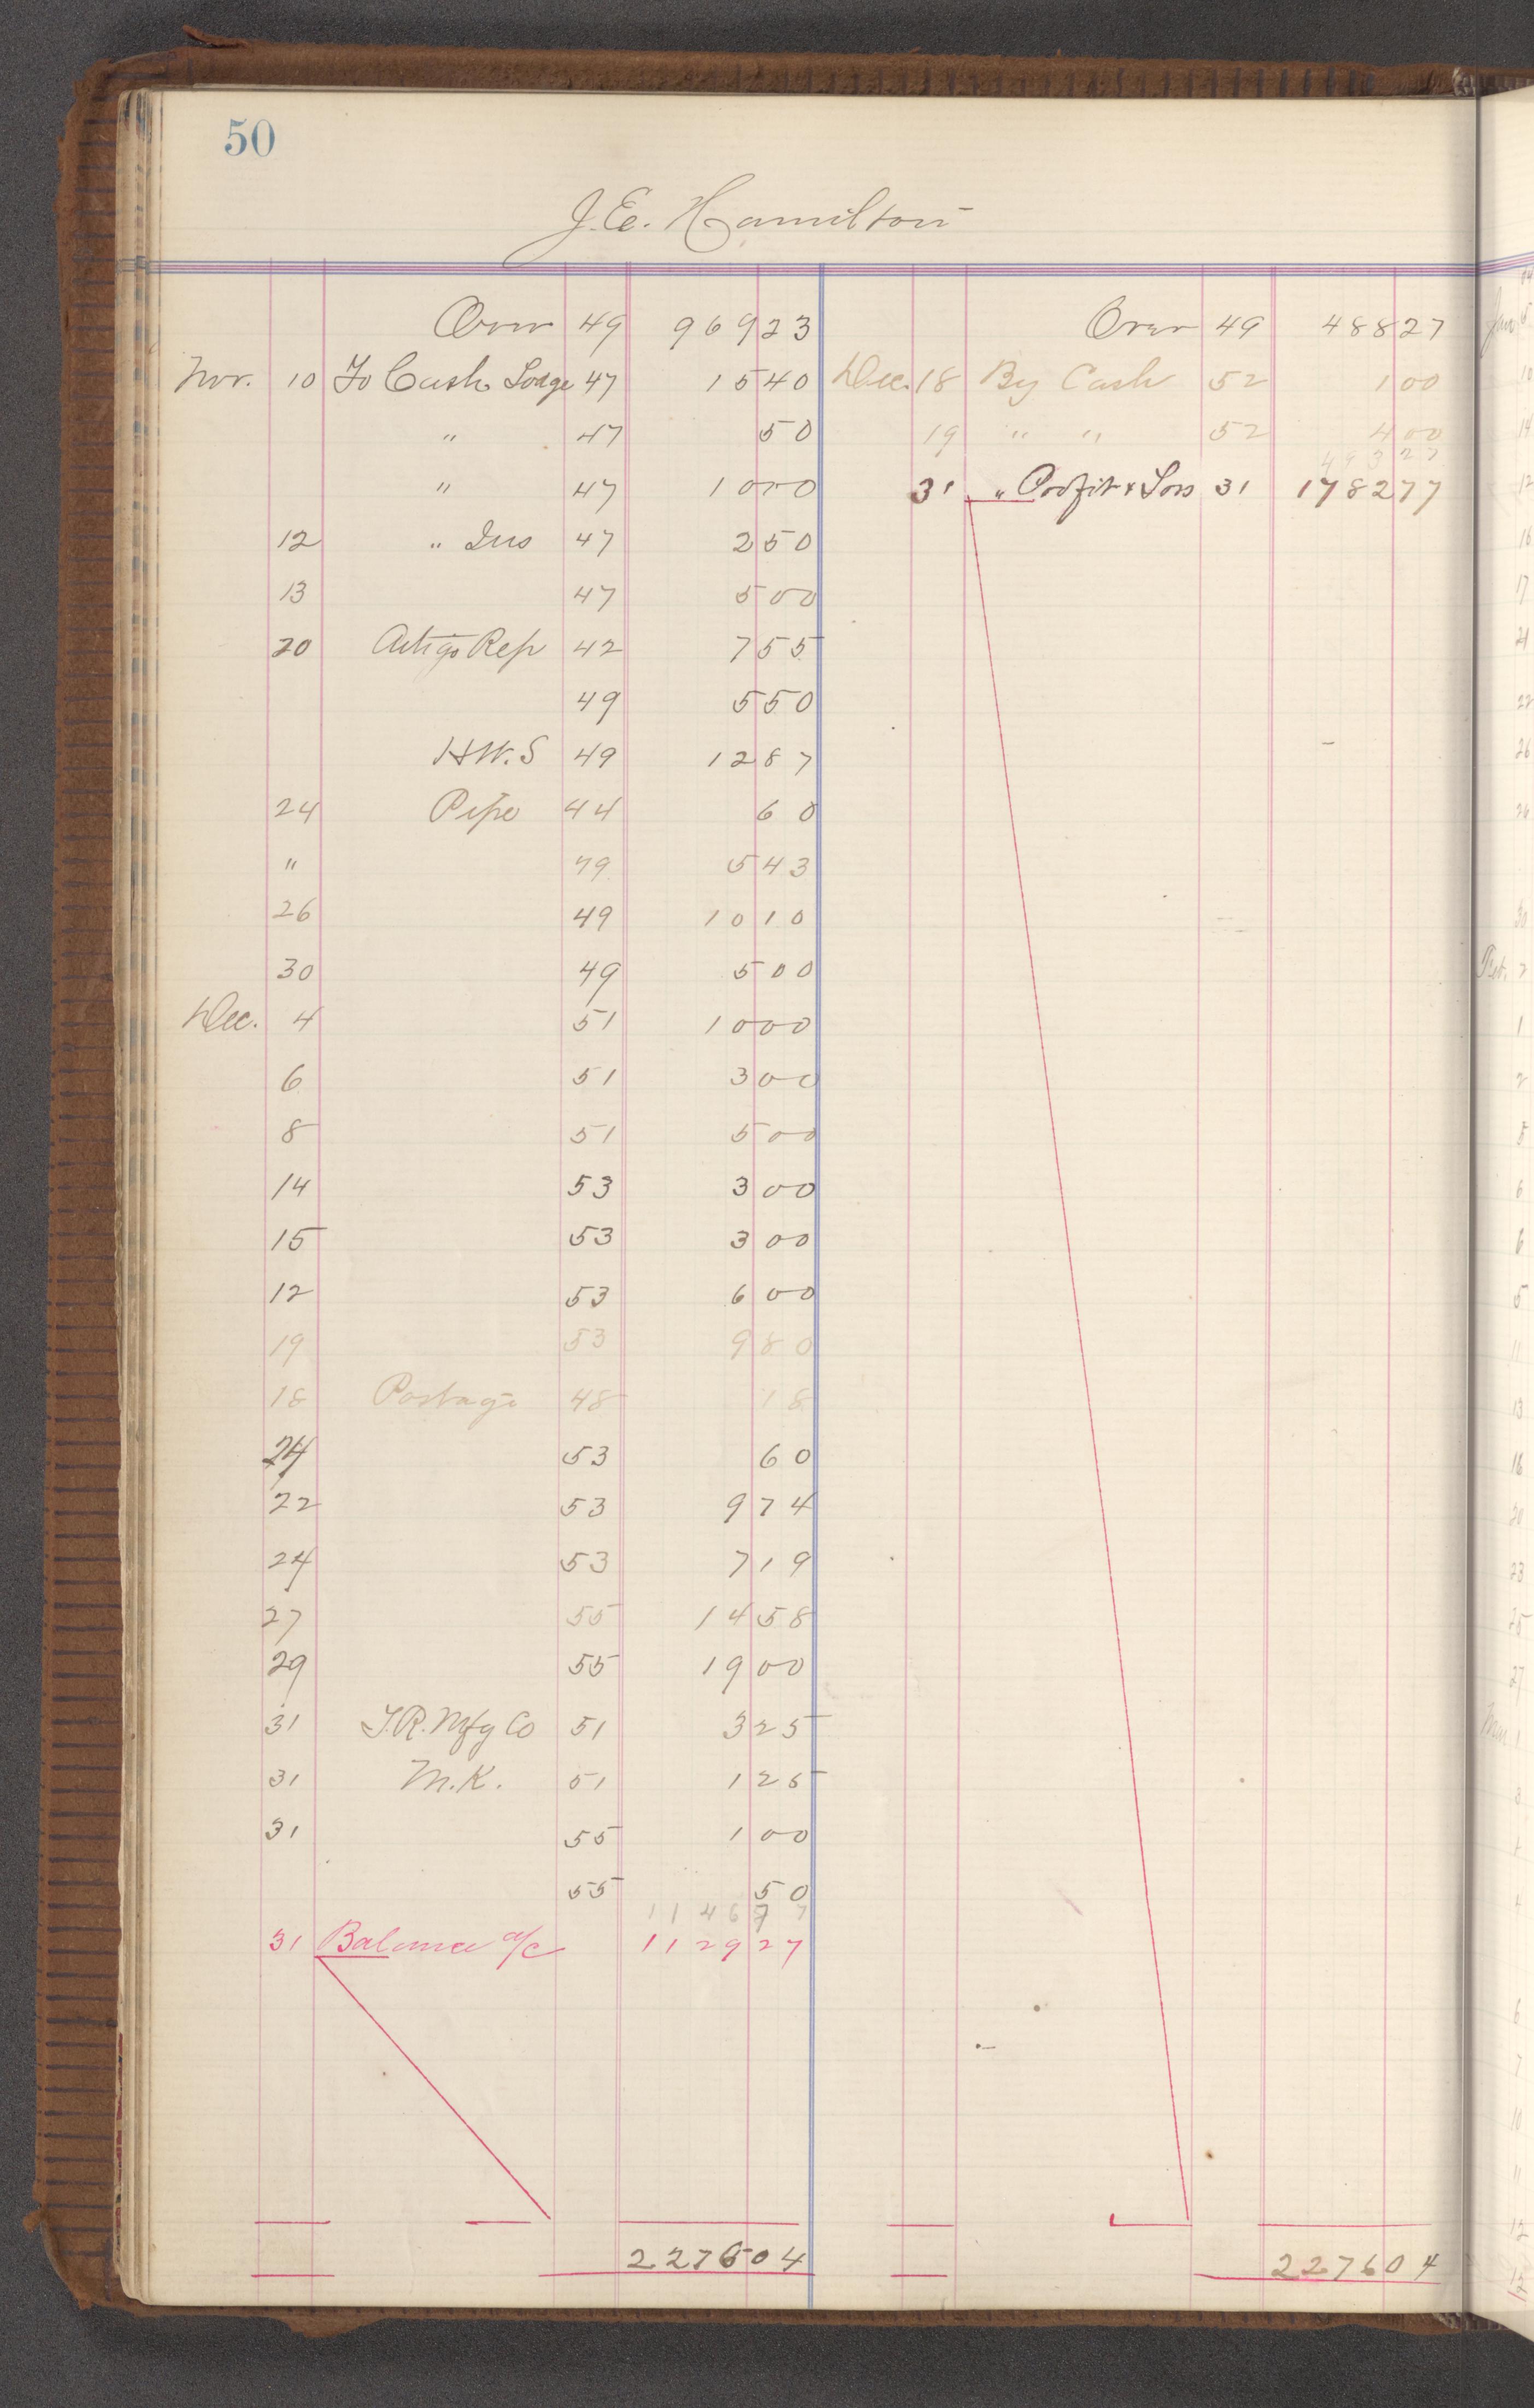 50
J. E. Hamilton
Over 49 969 23 Over 49 488 27
Nov. 10 To Cash Lodge 47 15 40 Dec. 18 By Cash 52 1 00
" 47 50 19 " " 52 4 00
493 27
" 47 10 00 31 " Profit & Loss 31 1782 77
12 " Ins 47 2 50
13 47 5 00
20 Rep 42 7 55
49 5 50
H.W.S 49 12 87
24 Pipe 44 60
" 49 5 43
26 49 10 10
30 49 5 00
Dec. 4 51 10 00
6 51 3 00
8 51 5 00
14 53 3 00
15 53 3 00
12 53 6 00
19 53 9 80
18 Postage 48 18
24 53 60
22 53 9 74
24 53 7 19
27 55 14 58
29 55 19 00
31 T.R. Mfg Co 51 3 25
31 M.K. 51 1 25
31 55 1 00
55 50
1146 77
31 Balance a/c 1129 27
2276 04 2276 04